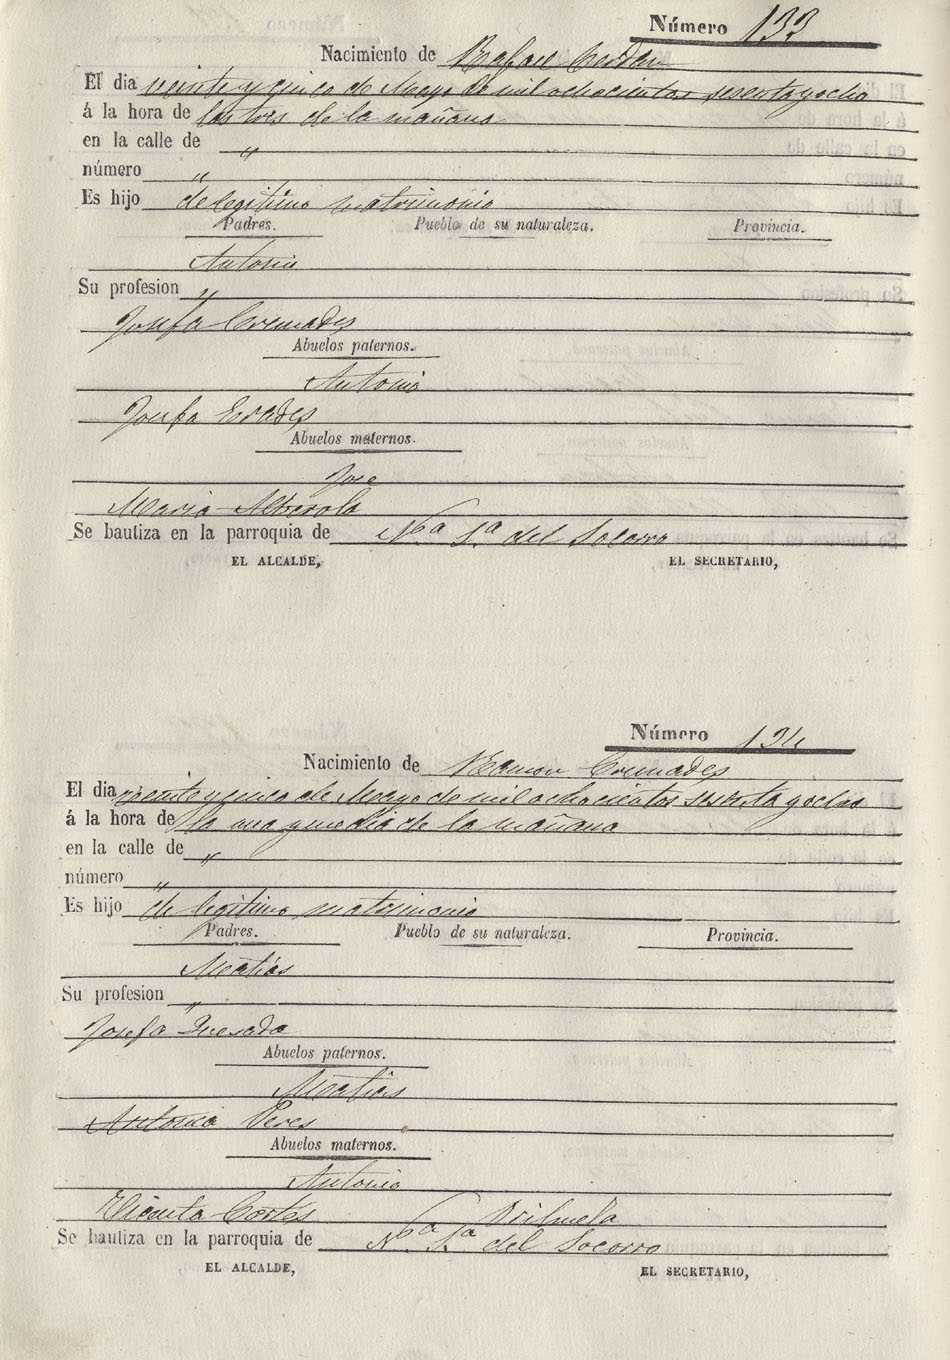 Número 133
Nacimiento de Rafael
El dia veinte y cinco de Mayo de mil ochocientos sesenta y ocho
á la hora de las tres de la mañana
en la calle de "
número "
Es hijo de legitimo matrimonio
Padres. Pueblo de su naturaleza. Provincia.
Antonio
Su profesion "
Josefa Cremades
Abuelos paternos.
Antonio
Josefa
Abuelos maternos.
Jose
Maria Alberola
Se bautiza en la parroquia de Nª Sª del Socorro
EL ALCALDE, EL SECRETARIO,
Número 134
Nacimiento de Ramon Cremades
El dia veinte y cinco de Mayo de mil ochocientos sesenta y ocho
á la hora de la una y media de la mañana
en la calle de "
número "
Es hijo de legitimo matrimonio
Padres. Pueblo de su naturaleza. Provincia.
Matias
Su profesion "
Josefa Quesada
Abuelos paternos.
Matias
Antonia Peres
Abuelos maternos.
Antonio
Vicenta Cortés Orihuela
Se bautiza en la parroquia de Nª Sª del Socorro
EL ALCALDE, EL SECRETARIO,